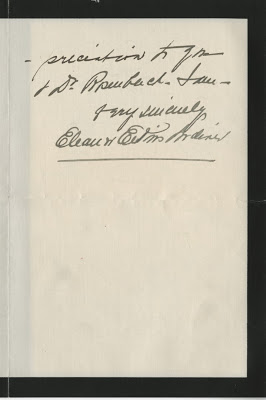 -preciation to you
& Dr. Rosenbach. I am -
Very sincerely
Eleanor Elkins Widener